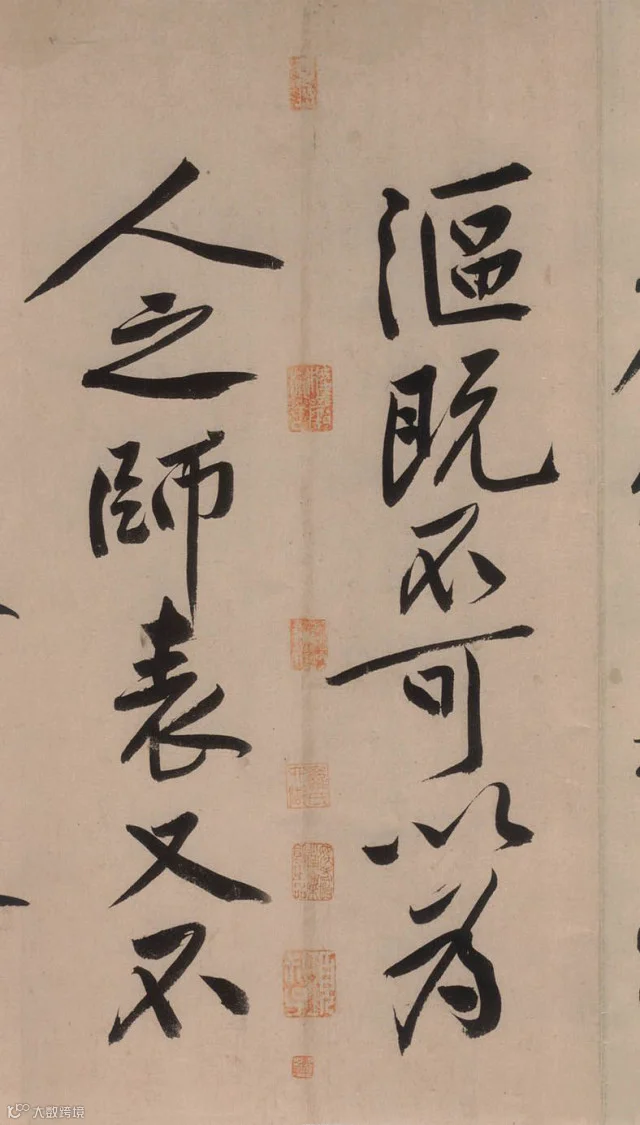 漚既不可以為
人之師表又不
大数跨境